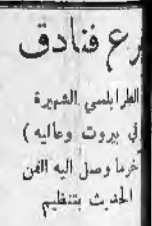 رع فنادق
الطرابلسي الشهيرة
في بيروت وعاليه )
خر ما وصل اليه الفن
الحديث بتنظيم